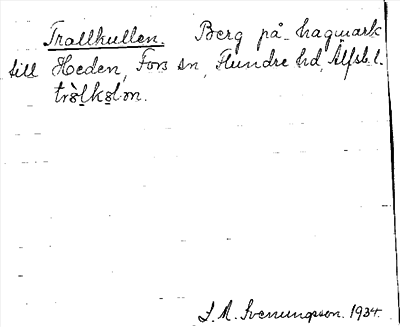 Trallkullen. Berg på hagmark
till Heden, Fors sn, Flundre hd, Älfsb. l.
tròl̥kɷl̥ən.
S. A. Svenungsson. 1934.